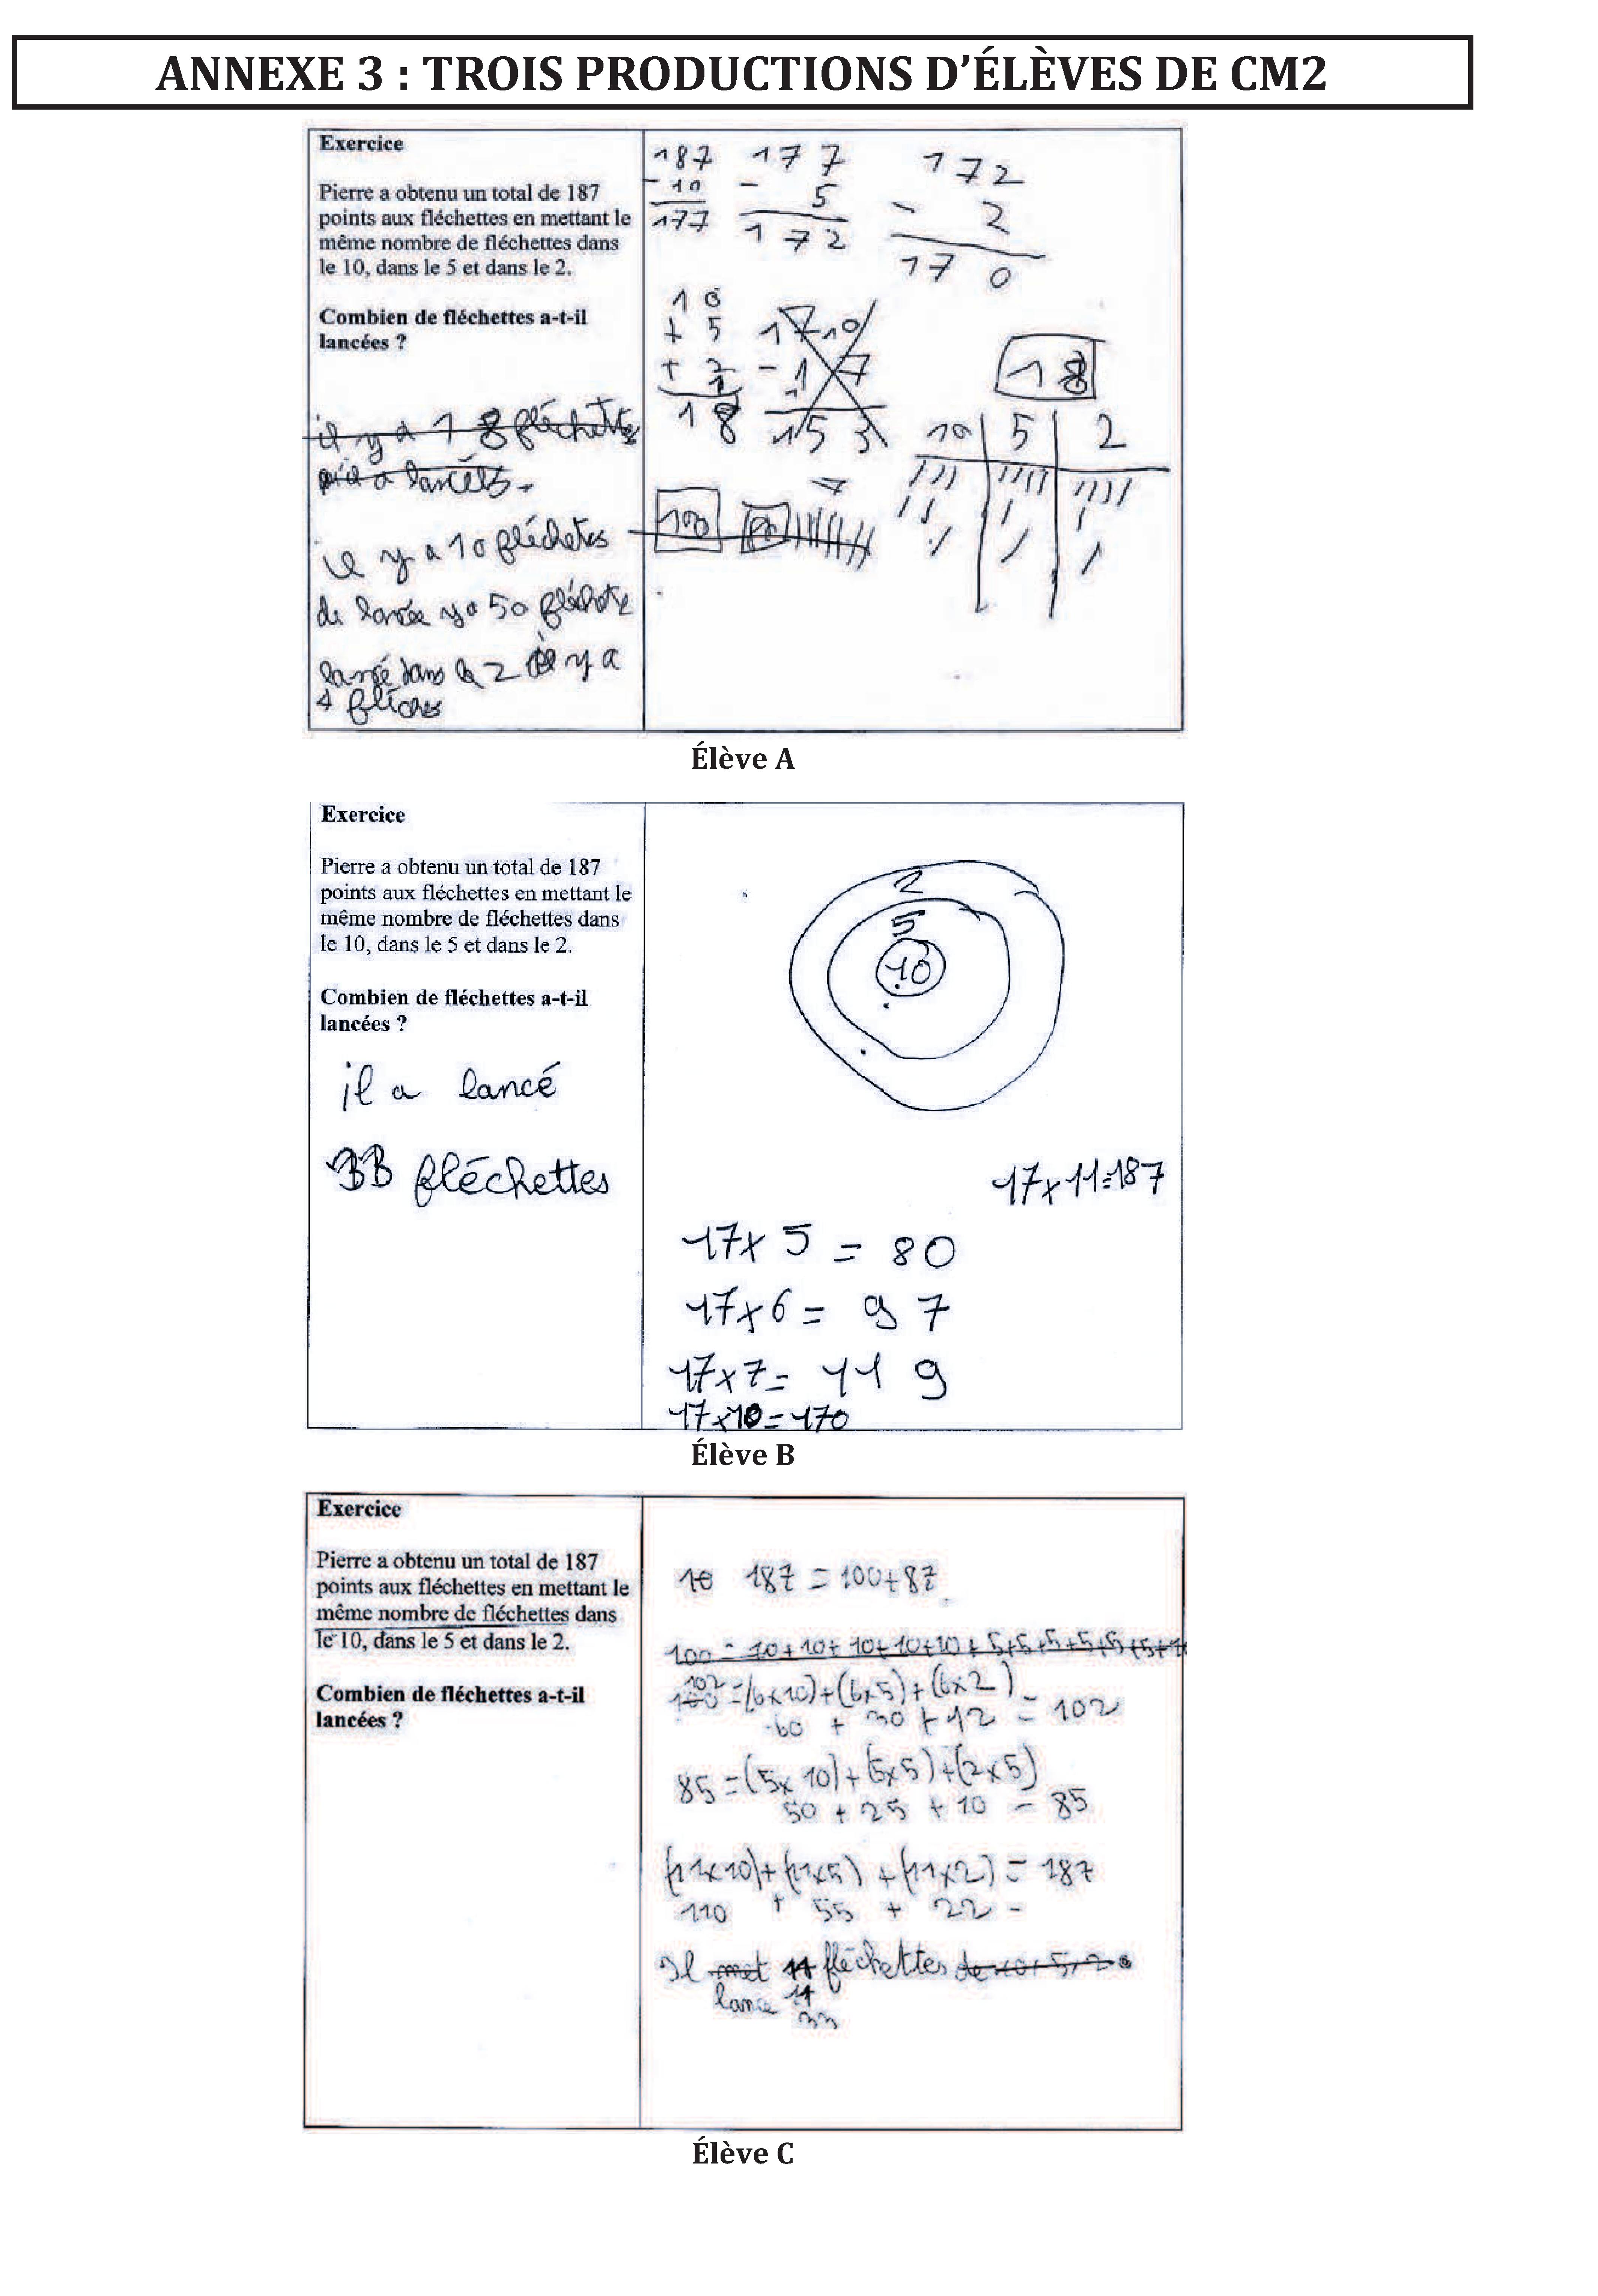 ANNEXE 3 : TROIS PRODUCTIONS D’ÉLÈVES DE CM2
Exercice
Pierre a obtenu un total de 187
points aux fléchettes en mettant le
même nombre de fléchettes dans
le 10, dans le 5 et dans le 2.
Combien de fléchettes a-t-il
lancées ?
il y a 18 fléchettes
a lancées.
il y a 10 fléchetes
de lancée y a 50 fléchete
lancé dans le 2 il y a
4 fléches
187 177 172
- 10 - 5 - 2
177 172 170
10
+ 5 1710
+ 2 - 17
1 1
18 153
18
10 5 2
//// //// ////
100
7
Élève A
Exercice
Pierre a obtenu un total de 187
points aux fléchettes en mettant le
même nombre de fléchettes dans
le 10, dans le 5 et dans le 2.
Combien de fléchettes a-t-il
lancées ?
il a lancé
33 fléchettes
2
5
10
17x11=187
17x5 = 80
17x6 = 97
17x7= 119
17x10=170
Élève B
Exercice
Pierre a obtenu un total de 187
points aux fléchettes en mettant le
même nombre de fléchettes dans
le 10, dans le 5 et dans le 2.
Combien de fléchettes a-t-il
lancées ?
10 187 = 100+87
100 = 10+10+10+10+10+5+5+5+5+5+5+10
102
100 =(6x10)+(6x5)+(6x2)
60 + 30 + 12 = 102
85=(5x10)+(5x5)+(2x5)
50 + 25 + 10 = 85
(11x10)+(11x5)+(11x2) = 187
110 + 55 + 22 =
Il met 11 fléchettes de 10, 5, 2.
lance 11
33
Élève C